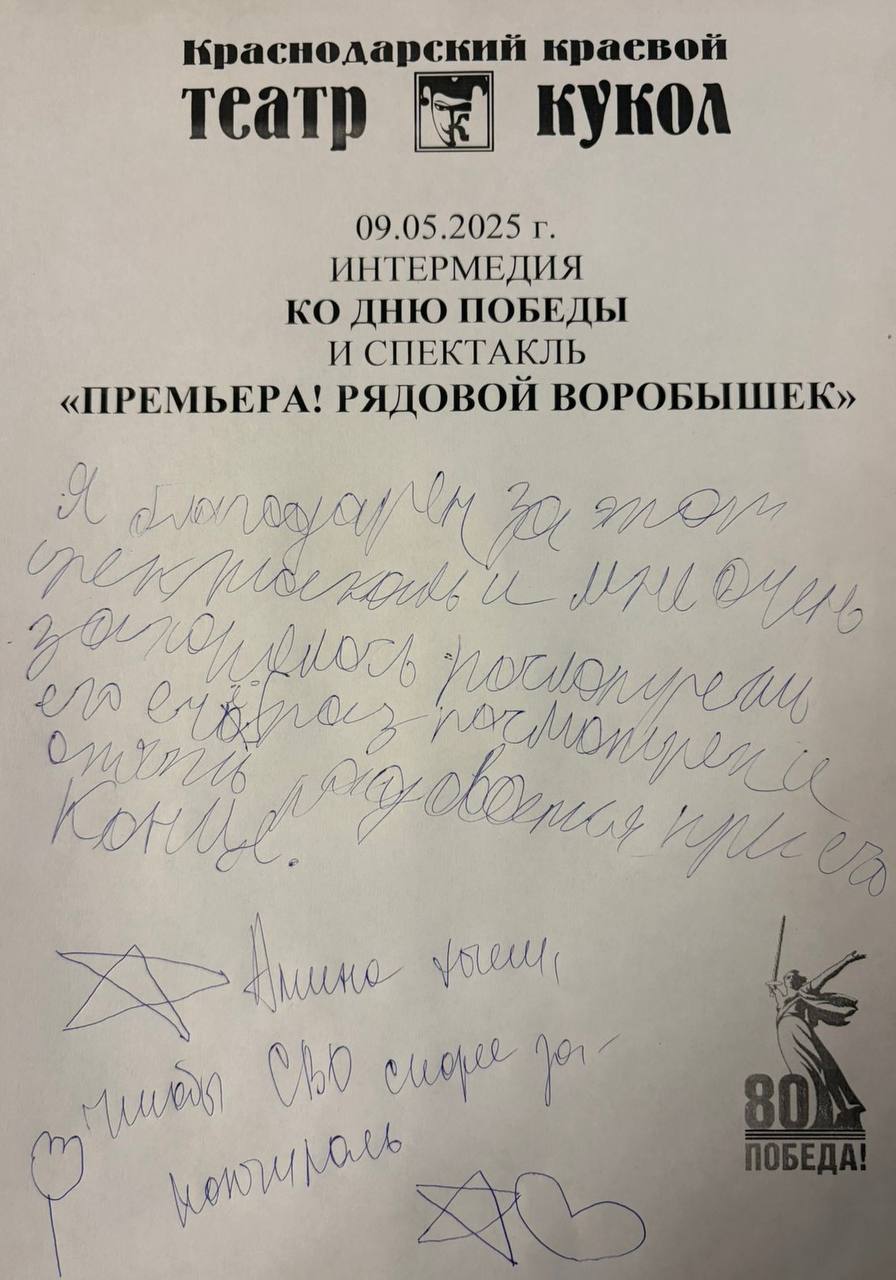 Краснодарский краевой
театр К кукол
09.05.2025 г.
ИНТЕРМЕДИЯ
КО ДНЮ ПОБЕДЫ
И СПЕКТАКЛЬ
«ПРЕМЬЕРА! РЯДОВОЙ ВОРОБЫШЕК»
Я благодарен за этот
спектакаль и мне очень
захотелось посмотреть
его ещё раз посмотреть и
опять радоватся при его
Конце.
Амина хочет,
чтобы СВО скорее за-
кончилась
80
ПОБЕДА!